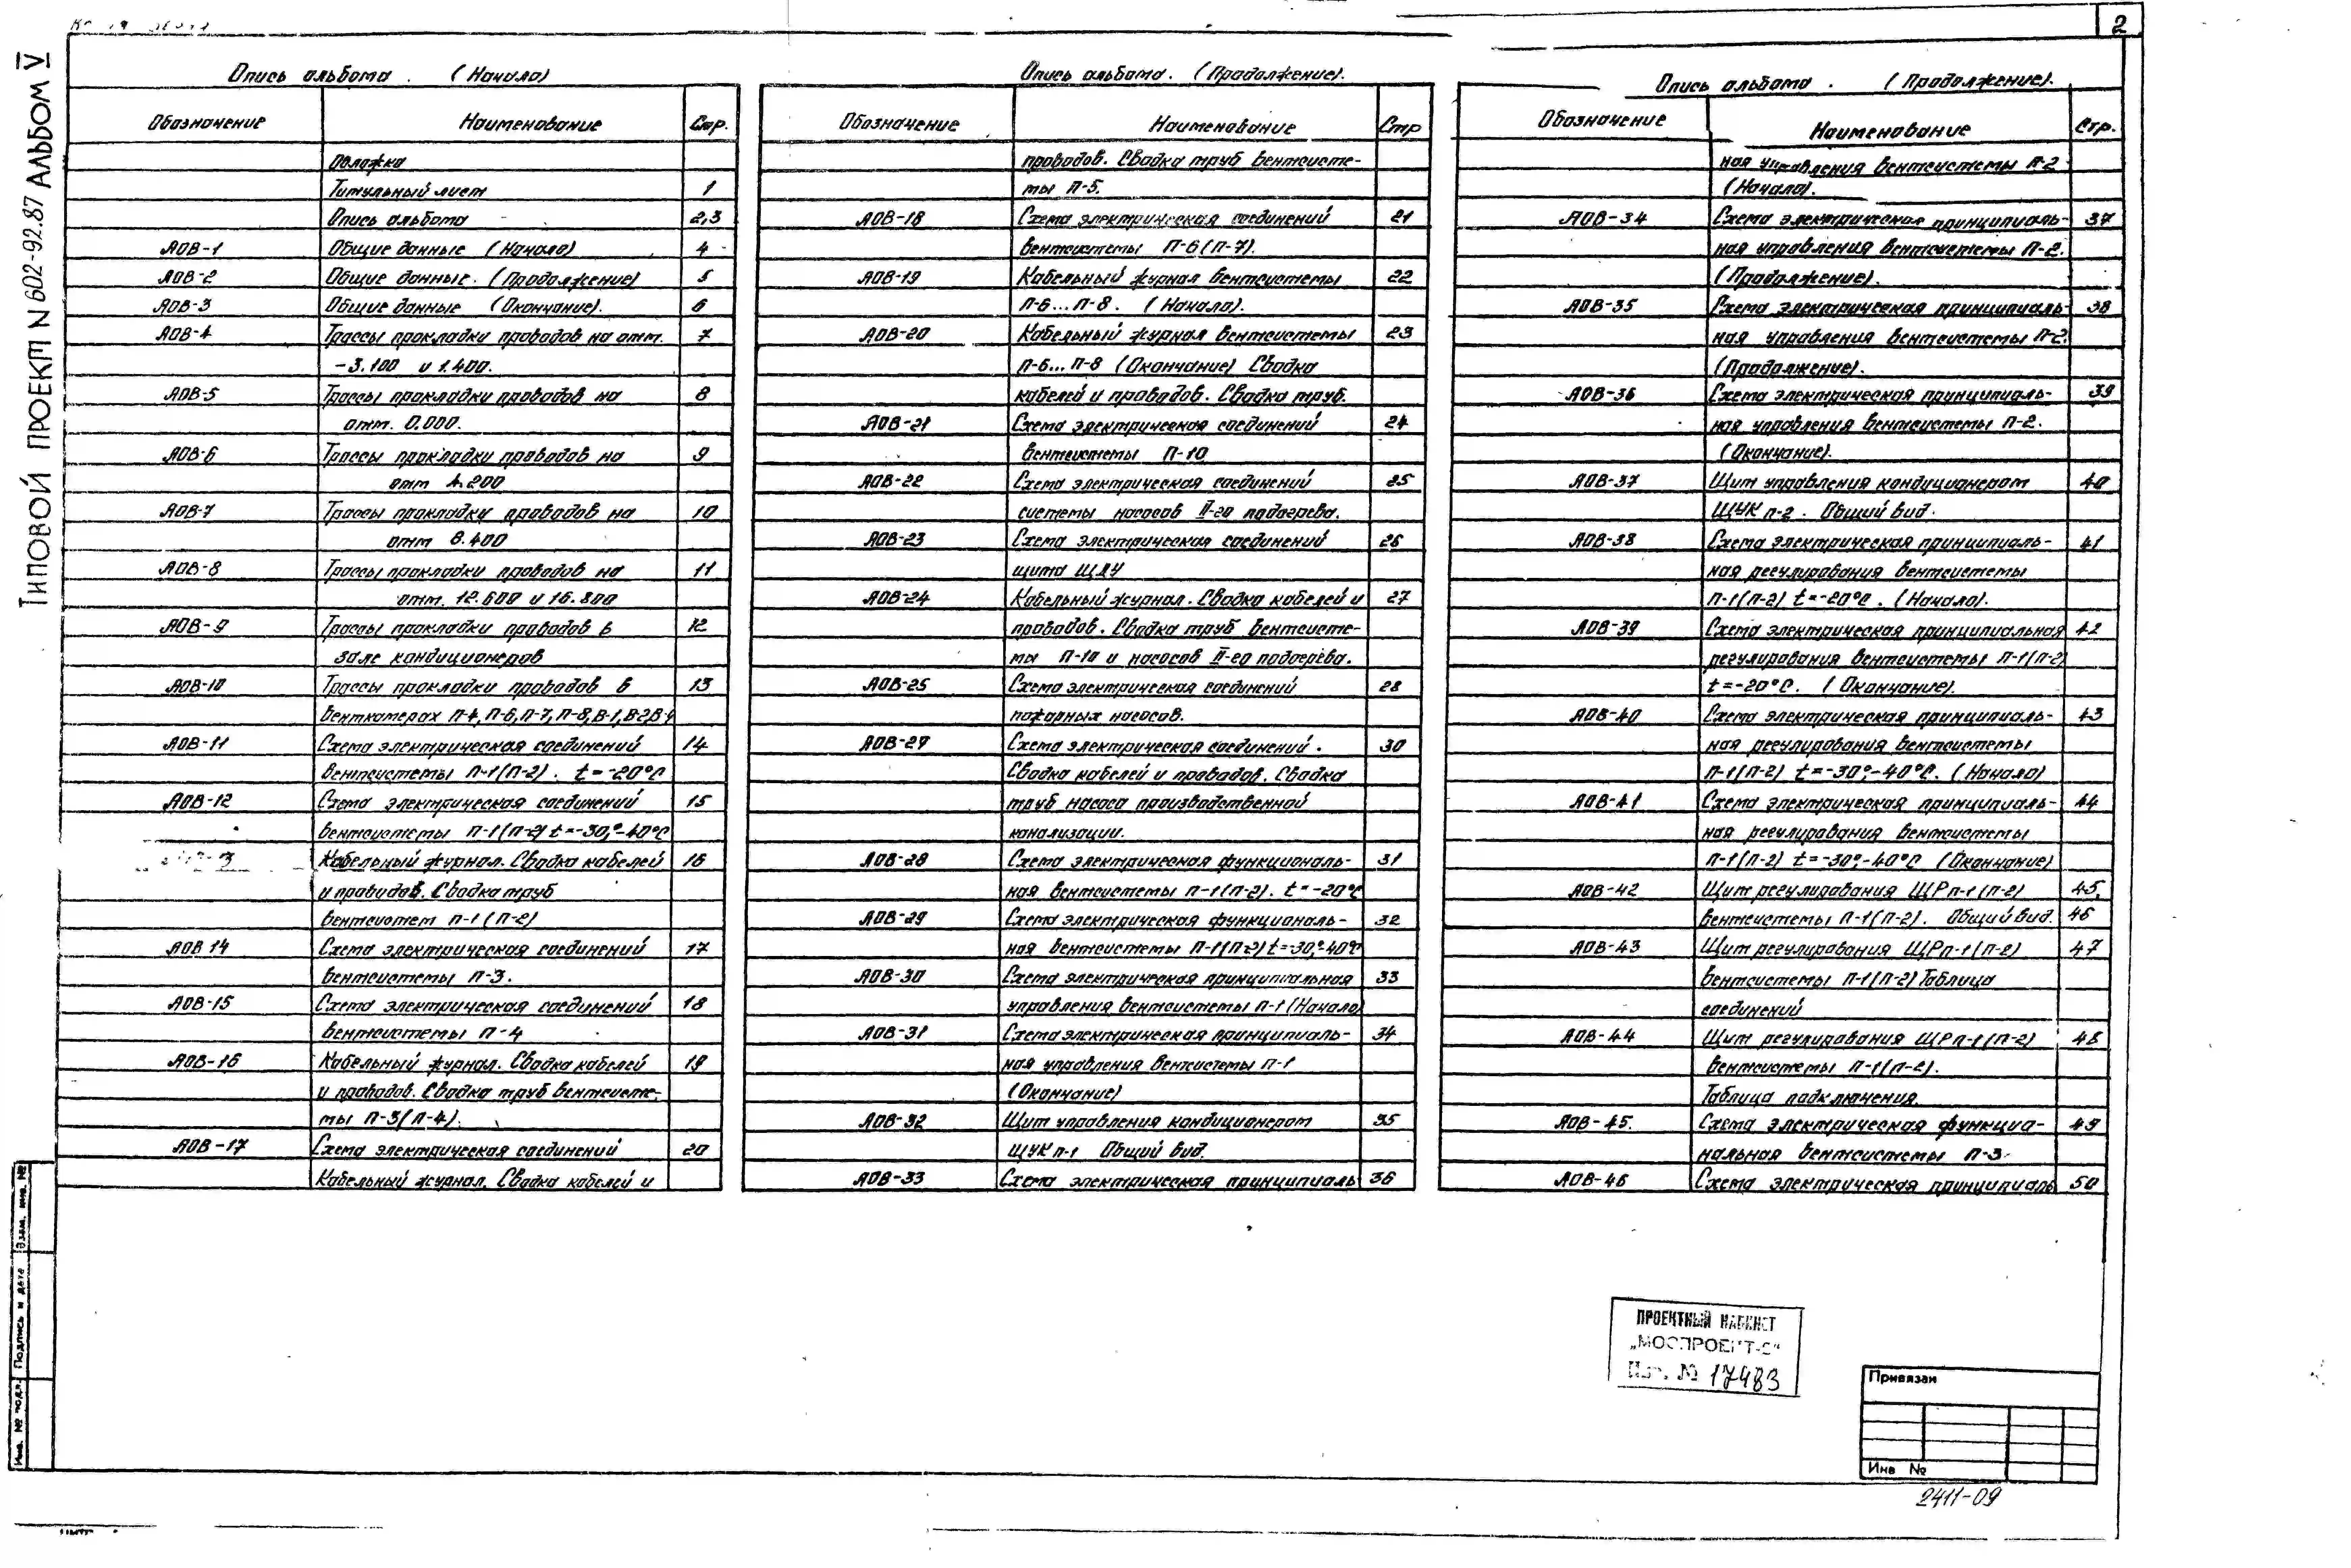 2
ТИПОВОЙ ПРОЕКТ N 602-92.87 АЛЬБОМ V
Опись альбома. (Начало)
Обозначение Наименование Стр.
Обложка
Титульный лист 1
Опись альбома 2,3
АОВ-1 Общие данные (Начало) 4
АОВ-2 Общие данные. (Продолжение) 5
АОВ-3 Общие данные (Окончание). 6
АОВ-4 Трассы прокладки проводов на отм. 7
-3.100 и 1.400.
АОВ-5 Трассы прокладки проводов на 8
отм. 0.000.
АОВ-6 Трассы прокладки проводов на 9
отм 4.200
АОВ-7 Трассы прокладки проводов на 10
отм 8.400
АОВ-8 Трассы прокладки проводов на 11
отм. 12.600 и 16.800
АОВ-9 Трассы прокладки проводов в 12
зале кондиционеров
АОВ-10 Трассы прокладки проводов в 13
венткамерах П-4, П-6, П-7, П-8, В-1, В-2,
АОВ-11 Схема электрическая соединений 14
вентсистемы П-1(П-2). t=-20°С
АОВ-12 Схема электрическая соединений 15
вентсистемы П-1(П-2) t=-30,°-40°С
3 Кабельный журнал. Сводка кабелей 16
и проводов. Сводка труб
вентсистем П-1(П-2)
АОВ 14 Схема электрическая соединений 17
вентсистемы П-3.
АОВ-15 Схема электрическая соединений 18
вентсистемы П-4
АОВ-16 Кабельный журнал. Сводка кабелей 19
и проводов. Сводка труб вентсисте-
мы П-3(П-4).
АОВ-17 Схема электрическая соединений 20
Кабельный журнал. Сводка кабелей и
Опись альбома. (Продолжение).
Обозначение Наименование Стр
проводов. Сводка труб вентсисте-
мы П-5.
АОВ-18 Схема электрическая соединений 21
вентсистемы П-6(П-7).
АОВ-19 Кабельный журнал вентсистемы 22
П-6...П-8. (Начало).
АОВ-20 Кабельный журнал вентсистемы 23
П-6...П-8 (Окончание) Сводка
кабелей и проводов. Сводка труб.
АОВ-21 Схема электрическая соединений 24
вентсистемы П-10
АОВ-22 Схема электрическая соединений 25
системы насосов II-го подогрева.
АОВ-23 Схема электрическая соединений 26
щита ЩДУ
АОВ-24 Кабельный журнал. Сводка кабелей и 27
проводов. Сводка труб вентсисте-
мы П-10 и насосов II-го подогрева.
АОВ-25 Схема электрическая соединений 28
пожарных насосов.
АОВ-27 Схема электрическая соединений. 30
Сводка кабелей и проводов. Сводка
труб насоса производственной
канализации.
АОВ-28 Схема электрическая функциональ- 31
ная вентсистемы П-1(П-2). t=-20°С
АОВ-29 Схема электрическая функциональ- 32
ная вентсистемы П-1(П-2) t=-30,°-40°С
АОВ-30 Схема электрическая принципиальная 33
управления вентсистемы П-1 (Начало)
АОВ-31 Схема электрическая принципиаль- 34
ная управления вентсистемы П-1
(Окончание)
АОВ-32 Щит управления кондиционером 35
ЩУК П-1 Общий вид.
АОВ-33 Схема электрическая принципиаль 36
Опись альбома. (Продолжение).
Обозначение Наименование Стр.
ная управления вентсистемы П-2
(Начало).
АОВ-34 Схема электрическая принципиаль- 37
ная управления вентсистемы П-2.
(Продолжение).
АОВ-35 Схема электрическая принципиаль- 38
ная управления вентсистемы П-2.
(Продолжение).
АОВ-36 Схема электрическая принципиаль- 39
ная управления вентсистемы П-2.
(Окончание).
АОВ-37 Щит управления кондиционером 40
ЩУК П-2. Общий вид.
АОВ-38 Схема электрическая принципиаль- 41
ная регулирования вентсистемы
П-1(П-2) t=-20°С. (Начало).
АОВ-39 Схема электрическая принципиальная 42
регулирования вентсистемы П-1(П-2)
t=-20°С. (Окончание).
АОВ-40 Схема электрическая принципиаль- 43
ная регулирования вентсистемы
П-1(П-2) t=-30°,-40°С. (Начало)
АОВ-41 Схема электрическая принципиаль- 44
ная регулирования вентсистемы
П-1(П-2) t=-30°,-40°С (Окончание)
АОВ-42 Щит регулирования ЩРП-1(П-2) 45,
вентсистемы П-1(П-2). Общий вид. 46
АОВ-43 Щит регулирования ЩРП-1(П-2) 47
вентсистемы П-1(П-2) Таблица
соединений
АОВ-44 Щит регулирования ЩРП-1(П-2) 48
вентсистемы П-1(П-2).
Таблица подключения.
АОВ-45. Схема электрическая функцио- 49
нальная вентсистемы П-3.
АОВ-46 Схема электрическая принципиаль 50
Взам. инв. №
Подпись и дата
Инв. № подл.
ПРОЕКТНЫЙ КАБИНЕТ
„МОСПРОЕКТ-2"
Инв. № 17483
Привязан
Инв №
2411-09